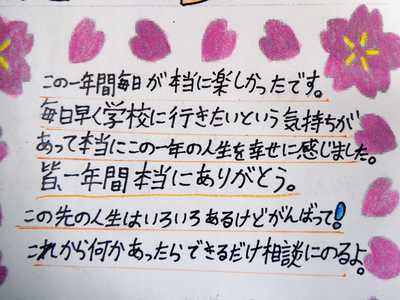 この一年間毎日が本当に楽しかったです。
毎日早く学校に行きたいという気持ちが
あって本当にこの一年の人生を幸せに感じました。
皆、一年間本当にありがとう。
この先の人生はいろいろあるけどがんばって!
これから何かあったらできるだけ相談にのるよ。